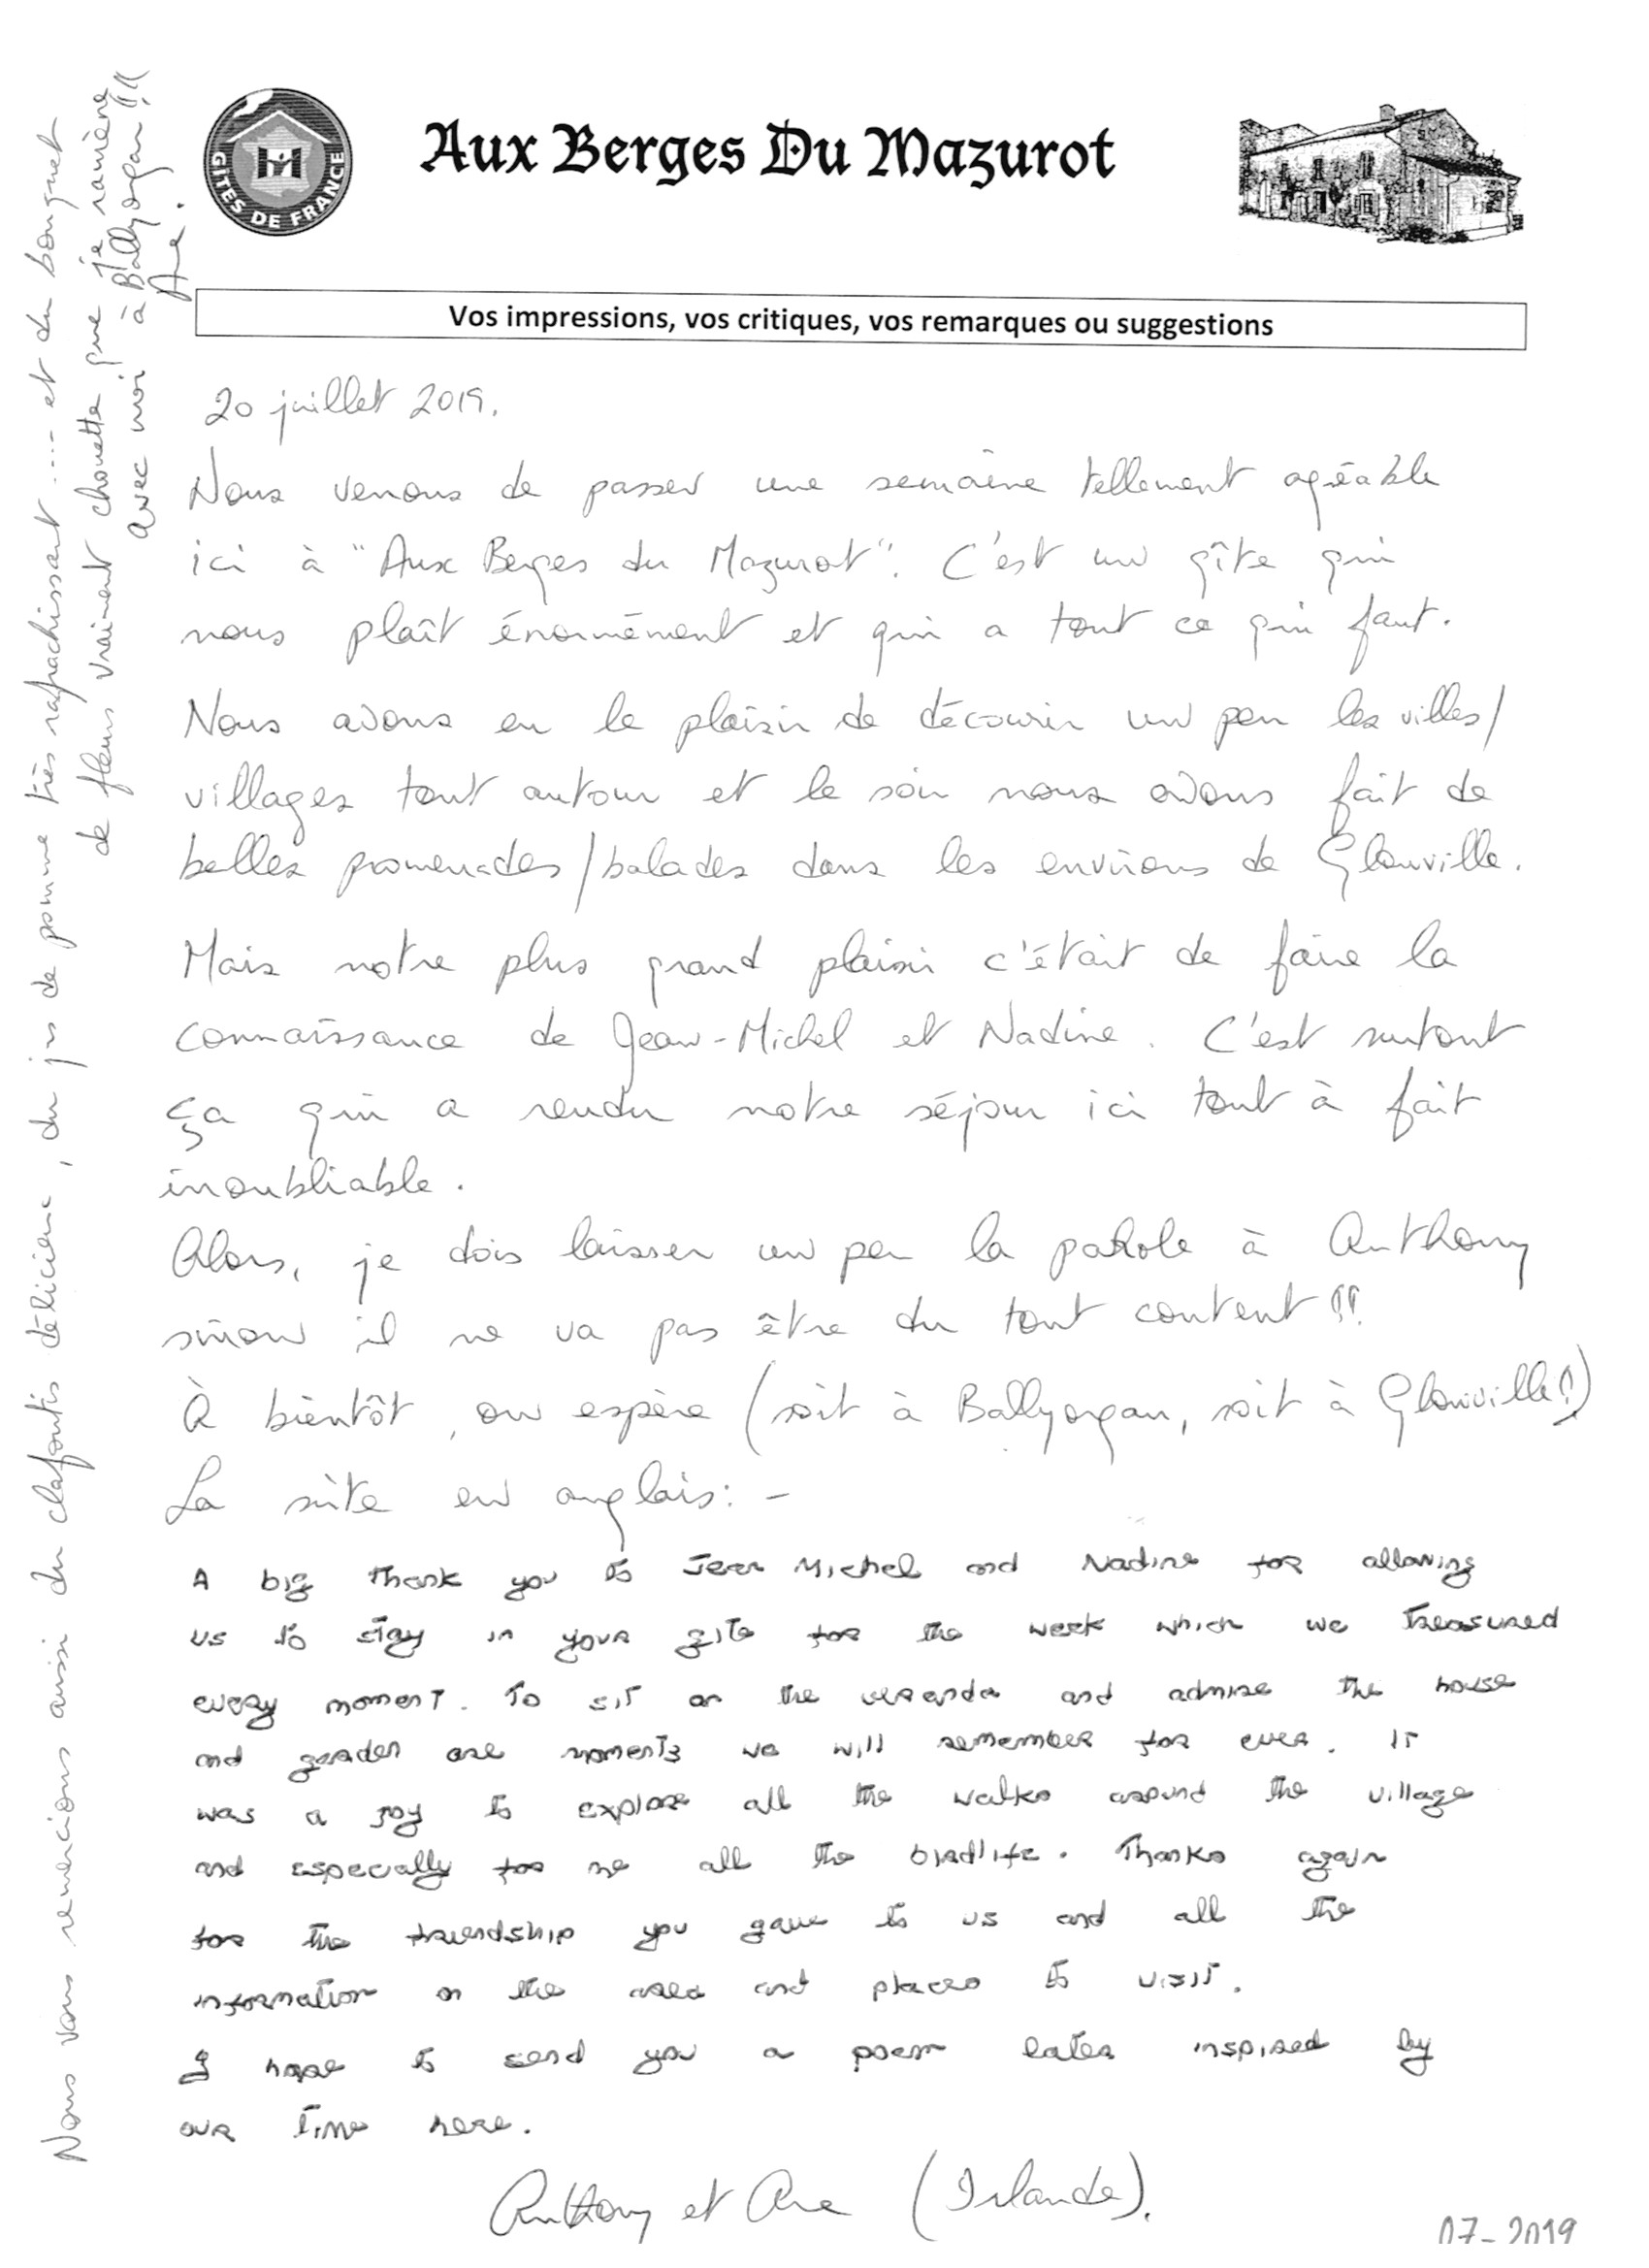 GÎTES DE FRANCE
Aux Berges Du Mazurot
Vos impressions, vos critiques, vos remarques ou suggestions
20 juillet 2019.
Nous venons de passer une semaine tellement agréable
ici à "Aux Berges du Mazurot". C'est un gîte qui
nous plaît énormément et qui a tout ce qui faut.
Nous avons eu le plaisir de découvrir un peu les villes/
villages tout autour et le soir nous avons fait de
belles promenades/balades dans les environs de Glonville.
Mais notre plus grand plaisir c'était de faire la
connaissance de Jean-Michel et Nadine. C'est surtout
ça qui a rendu notre séjour ici tout à fait
inoubliable.
Alors, je dois laisser un peu la parole à Anthony
sinon il ne va pas être du tout content!!
À bientôt, on espère (soit à Ballyorgan, soit à Glonville!)
La suite en anglais: -
A big thank you to Jean Michel and Nadine for allowing
us to stay in your gite for the week which we treasured
every moment. To sit on the veranda and admire the house
and garden are moments we will remember for ever. It
was a joy to explore all the walks around the village
and especially for me all the birdlife. Thanks again
for the friendship you gave to us and all the
information on the area and places to visit.
I hope to send you a poem later inspired by
our time here.
Anthony et Ane (Irlande).
07-2019
Nous vous remercions aussi du clafoutis délicieux, du jus de pomme très rafraichissant .... et du bouquet
de fleurs vraiment chouette que je ramène
avec moi à Ballyorgan!!
Ane.